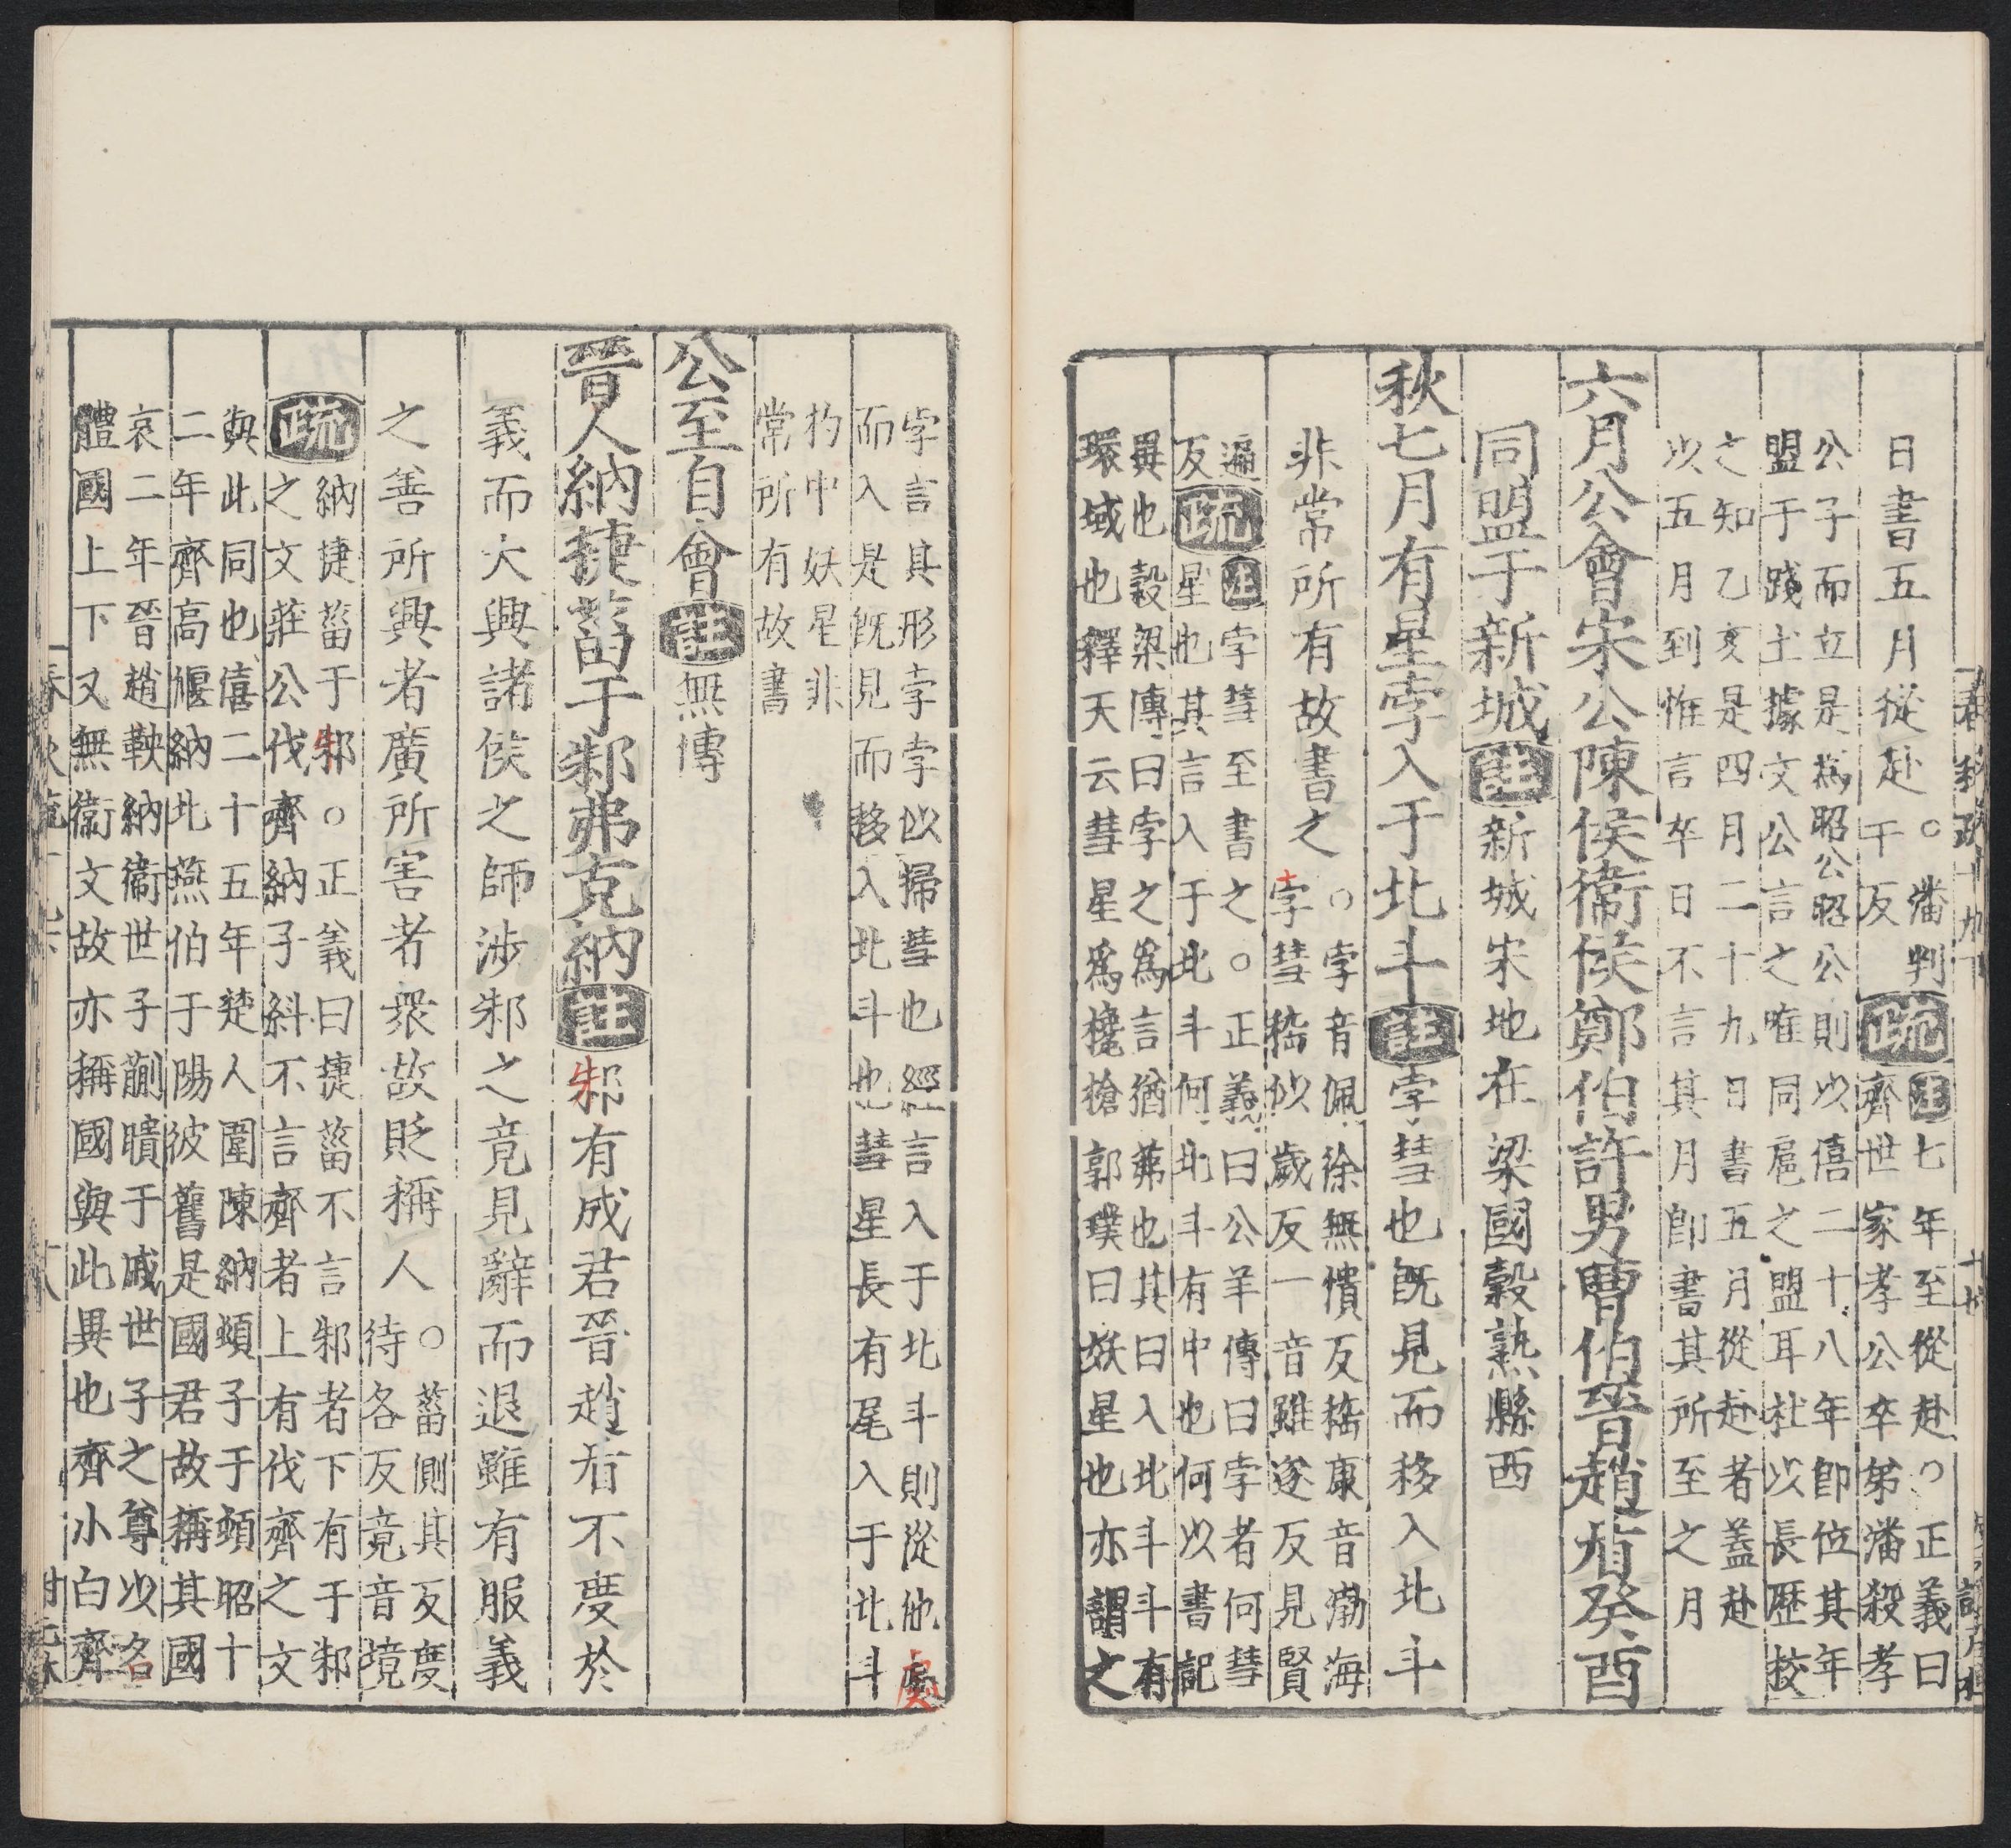 日書五月從赴○潘判干反疏註七年至從赴○正義曰
齊世家孝公卒弟潘殺孝
公子而立是為昭公昭公則以僖二十八年卽位其年
盟于踐土據文公言之唯同扈之盟耳杜以長歷挍
之知乙亥是四月二十九日書五月從赴者蓋赴
以五月到惟言卒日不言其月卽書其所至之月
六月公會宋公陳侯衛侯鄭伯許男曹伯晉趙盾癸酉
同盟于新城註新城宋地在梁國穀熟縣西
秋七月有星孛入于北斗註孛彗也既見而移入北斗
非常所有故書之○孛音佩徐無憒反嵇康音渤海
字彗嵇似歲反一音雖遂反見賢
遍反疏註孛彗至書之○正義曰公羊傳曰孛者何彗
星也其言入于北斗何北斗有中也何以書記
異也穀梁傳曰孛之為言猶茀也其曰入北斗斗有
環域也釋天云彗星為欃槍郭璞曰妖星也亦謂之
孛言其形孛孛以掃彗也經言入于北斗則從他處
而入是既見而移入北斗也彗星長有尾入于北斗
杓中妖星非
常所有故書
公至自會註無傳
晉人納捷菑于邾弗克納註邾有成君晉趙盾不度於
義而大興諸侯之師涉邾之竟見辭而退雖有服義
之善所興者廣所害者衆故貶稱人○菑側其反度
待各反竟音境
疏納捷菑于邾○正義曰捷菑不言邾者下有于邾
之文莊公伐齊納子糾不言齊者上有伐齊之文
與此同也僖二十五年楚人圍陳納頓子于頓昭十
二年齊高偃納北燕伯于陽彼舊是國君故稱其國
哀二年晉趙鞅納衞世子蒯聵于戚世子之尊以名
體國上下又無衞文故亦稱國與此異也齊小白齊